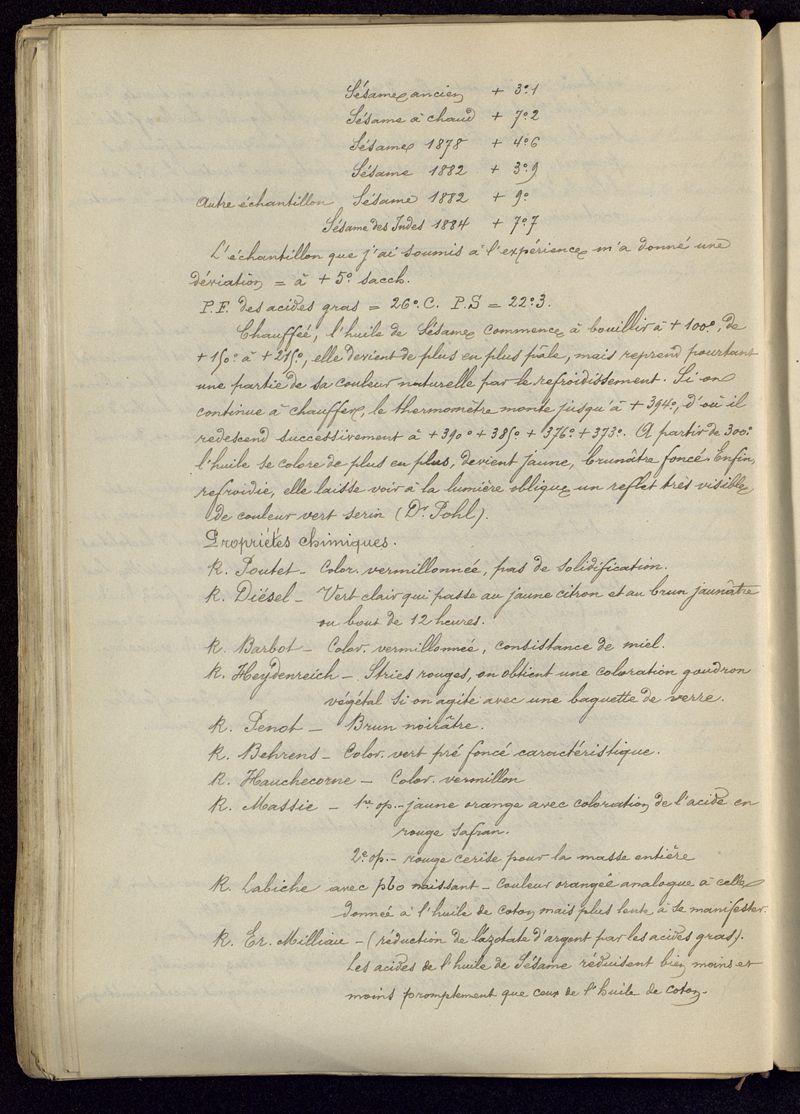 Sésame ancien + 3°.1
Sésame à chaud + 7°.2
Sésame 1878 + 4°.6
Sésame 1882 + 3°.9
Autre échantillon Sésame 1882 + 9°
Sésame des Indes 1884 + 7°.7
L'échantillon que j'ai soumis à l'expérience m'a donné une
déviation = à + 5° sacch.
P.F. des acides gras = 26°.C. P.S = 22°.3.
Chauffée, l'huile de Sésame commence à bouillir à + 100°, de
+ 150° à + 215°, elle devient de plus en plus pâle, mais reprend pourtant
une partie de sa couleur naturelle par le refroidissement. Si on
continue à chauffer, le thermomètre monte jusqu'à + 394°, d'où il
redescend successivement à + 390° + 385° + 376° + 373°. A partir de 300°
l'huile se colore de plus en plus, devient jaune, brunâtre foncé. Enfin,
refroidie, elle laisse voir à la lumière oblique un reflet très visible,
de couleur vert serin (Dr Pohl).
Propriétés chimiques.
R. Poutet – Color. vermillonnée, pas de solidification.
R. Diësel – Vert clair qui passe au jaune citron et au brun jaunâtre
au bout de 12 heures.
R. Barbot – Color. vermillonnée, consistance de miel.
R. Heydenreich – Stries rouges, on obtient une coloration goudron
végétal si on agite avec une baguette de verre.
R. Penot – Brun noirâtre.
R. Behrens – Color. vert pré foncé caractéristique.
R. Hauchecorne – Color. vermillon
R. Massie – 1re op. – jaune orange avec coloration de l'acide en
rouge safran.
2e op. – rouge cerise pour la masse entière
R. Labiche avec pbo naissant – Couleur orangée analogue à celle
donnée à l'huile de coton mais plus lente à se manifester.
R. Er. Milliau – (réduction de l'azotate d'argent par les acides gras).
Les acides de l'huile de Sésame réduisent bien moins et
moins promptement que ceux de l'huile de coton.